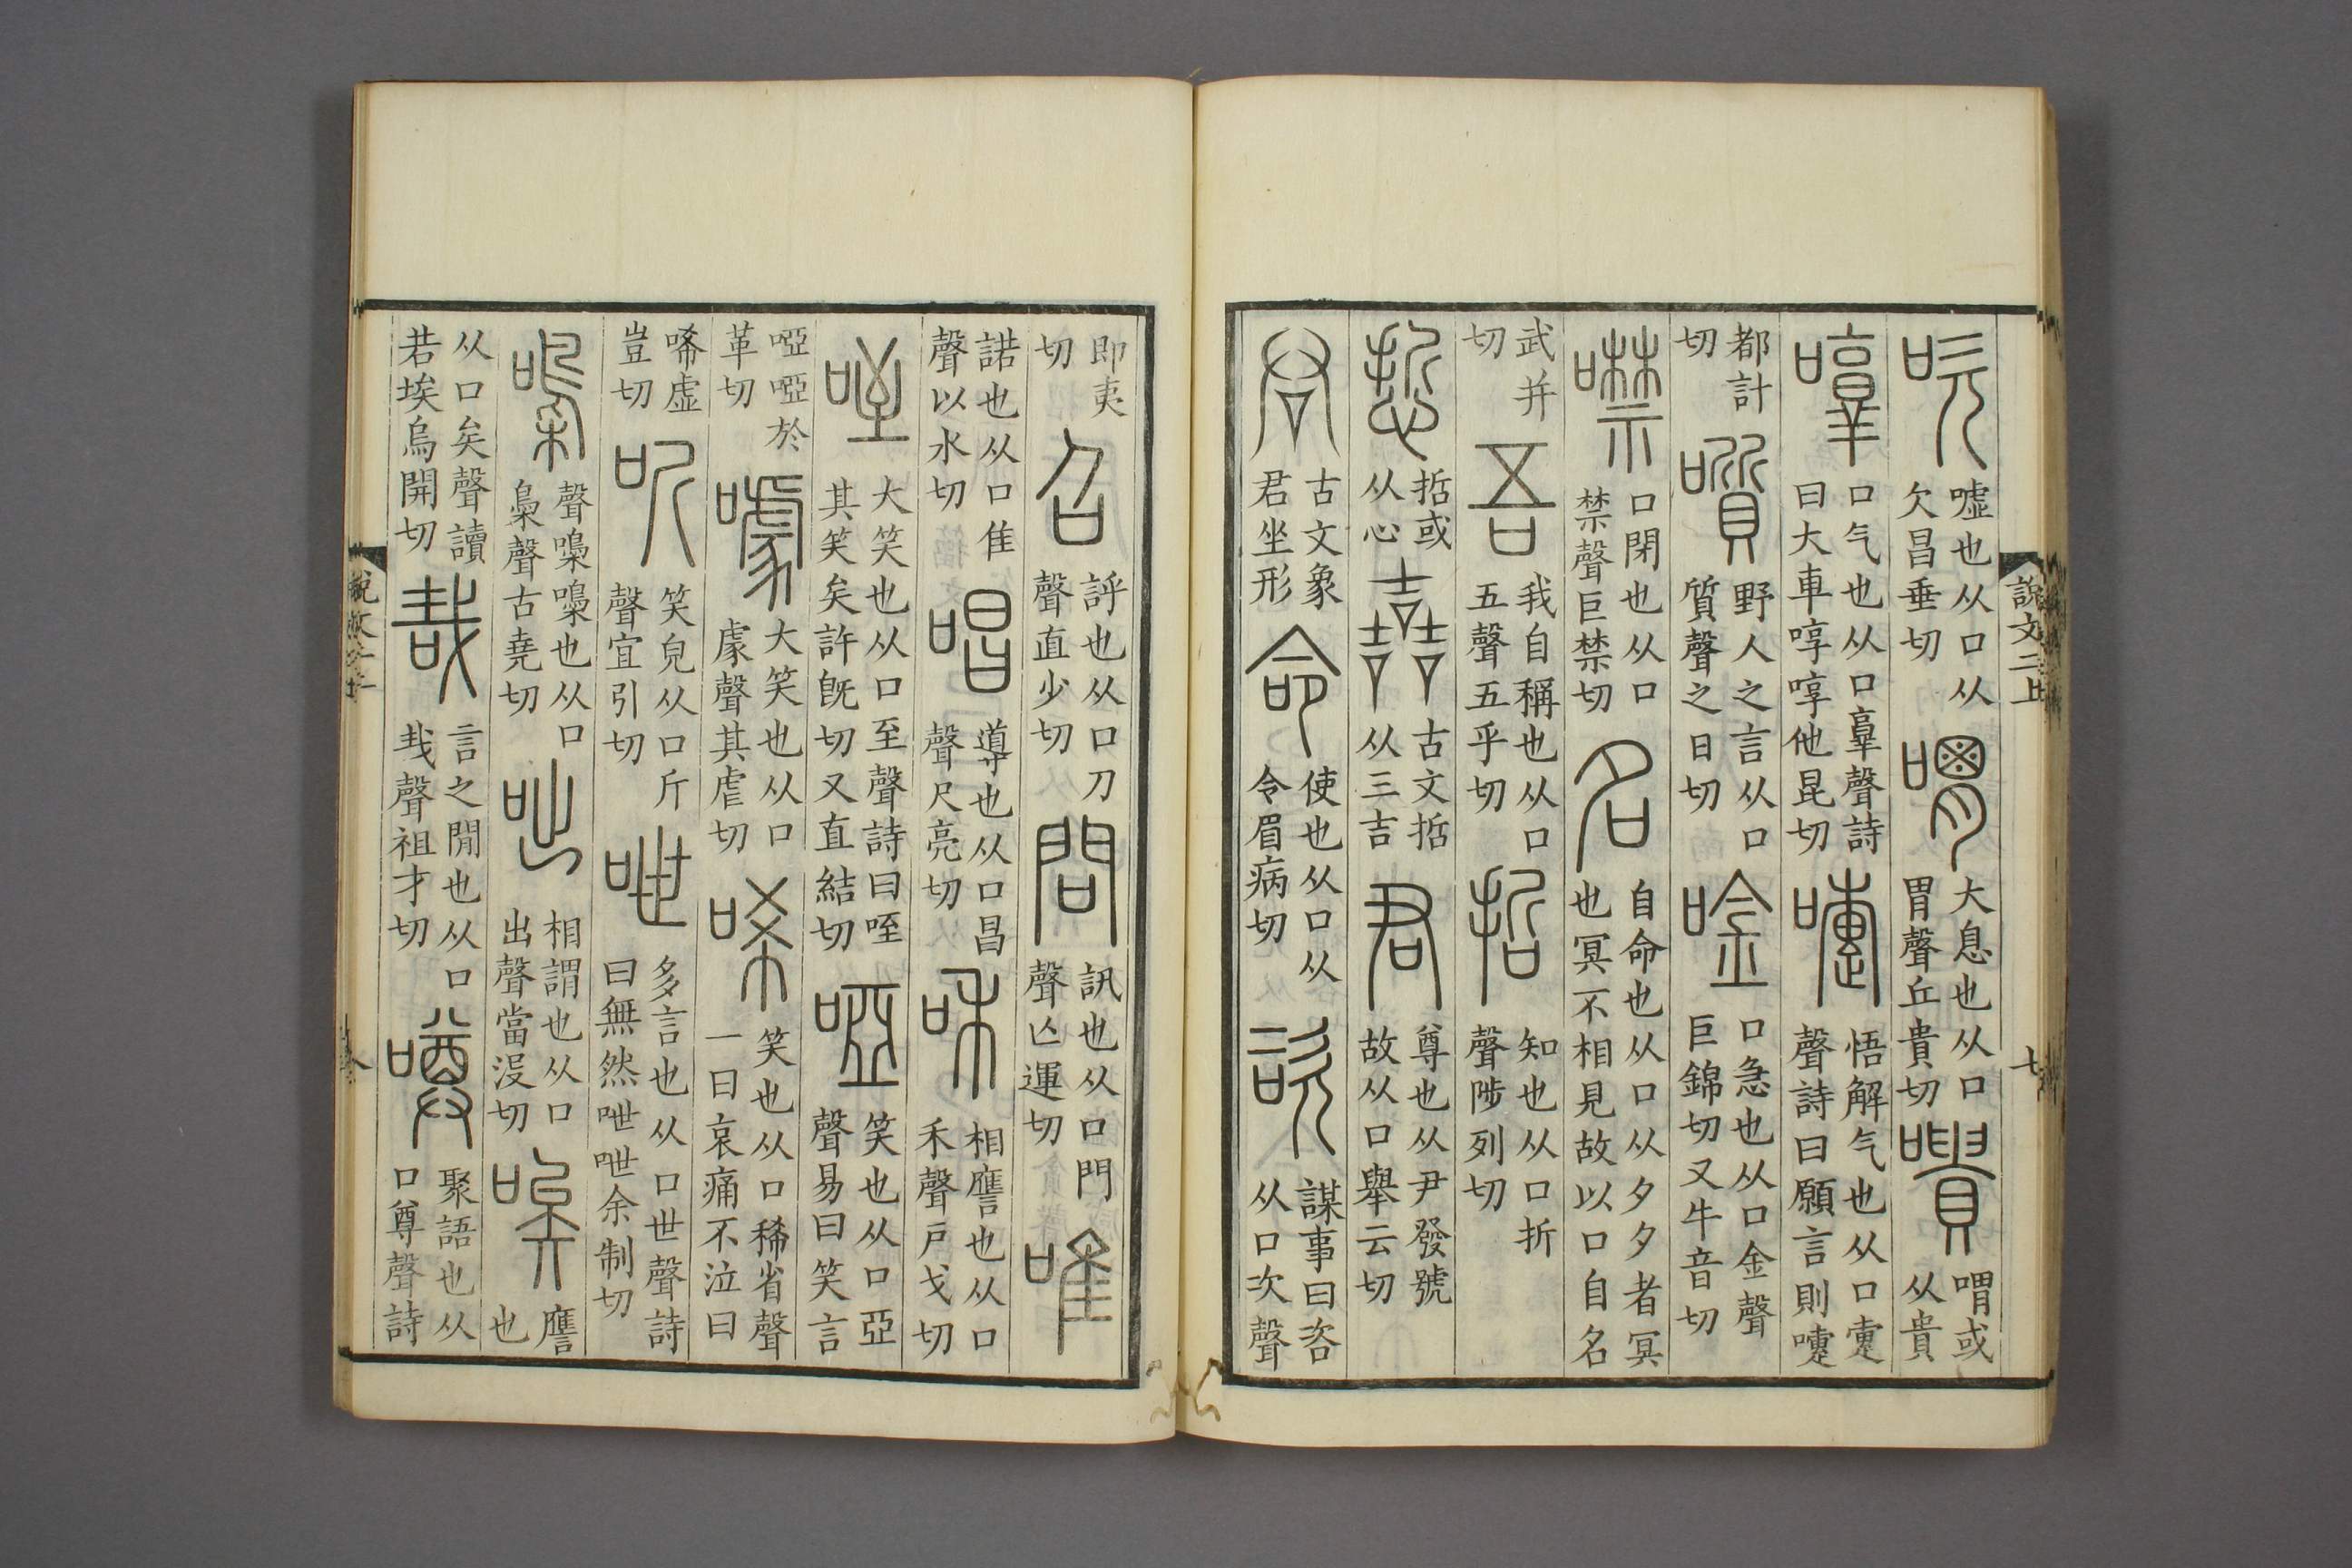 說文二上
七
吹噓也从口从欠昌垂切喟大息也从口胃聲丘貴切嘳喟或从貴
啍口气也从口𦎫聲詩曰大車啍啍他昆切嚏悟解气也从口疐聲詩曰願言則嚏
都計切噴野人之言从口質聲之日切唫口急也从口金聲巨錦切又牛音切
噤口閉也从口禁聲巨禁切名自命也从口从夕夕者冥也冥不相見故以口自名
武并切吾我自稱也从口五聲五乎切哲知也从口折聲陟列切
悊哲或从心嚞古文哲从三吉君尊也从尹發號故从口舉云切
𠱭古文象君坐形命使也从口从令眉病切咨謀事曰咨从口次聲
即夷切召評也从口刀聲直少切問訊也从口門聲亾運切唯
諾也从口隹聲以水切唱導也从口昌聲尺亮切咊相譍也从口禾聲戶戈切
咥大笑也从口至聲詩曰咥其笑矣許旣切又直結切啞笑也从口亞聲易曰笑言
啞啞於革切噱大笑也从口豦聲其虐切唏笑也从口稀省聲一曰哀痛不泣曰
唏虛豈切听笑皃从口斤聲宜引切呭多言也从口世聲詩曰無然呭呭余制切
嘄聲嘄嘄也从口梟聲古堯切咄相謂也从口出聲當沒切唉譍也
从口矣聲讀若埃烏開切哉言之閒也从口𢦏聲祖才切噂聚語也从口尊聲詩
說文二上
八